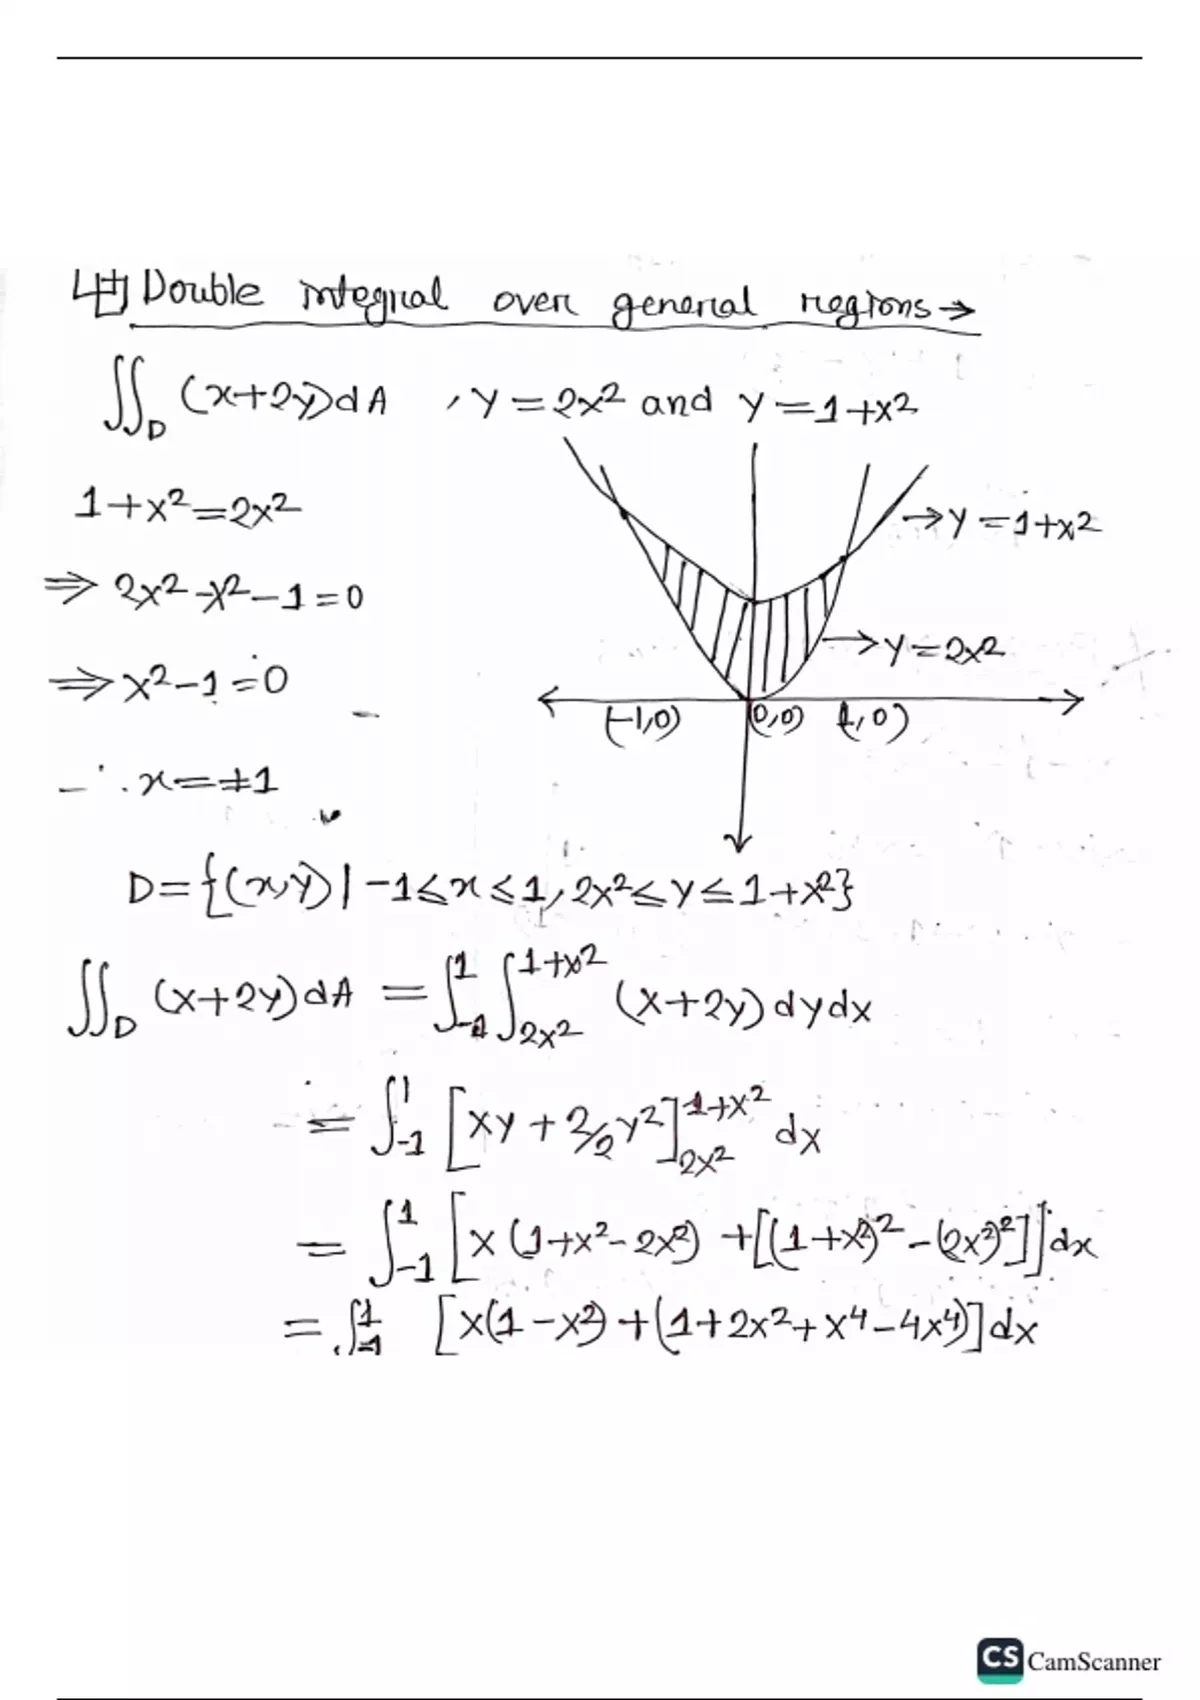 Double integral over general regions →
∬_D (x+2y)dA , y=2x² and y=1+x²
1+x²=2x²
→y=1+x²
⇒ 2x²-x²-1=0
→y=2x²
⇒ x²-1=0
(-1,0) (0,0) (1,0)
∴ x=±1
D={(x,y)|-1≤x≤1, 2x²≤y≤1+x²}
∬_D (x+2y)dA = ∫_{-1}^{1} ∫_{2x²}^{1+x²} (x+2y)dydx
= ∫_{-1}^{1} [xy+2/2y²]_{2x²}^{1+x²} dx
= ∫_{-1}^{1} [x(1+x²-2x²)+[(1+x²)²-(2x²)²]]dx
= ∫_{-1}^{1} [x(1-x²)+(1+2x²+x⁴-4x⁴)]dx
CS CamScanner